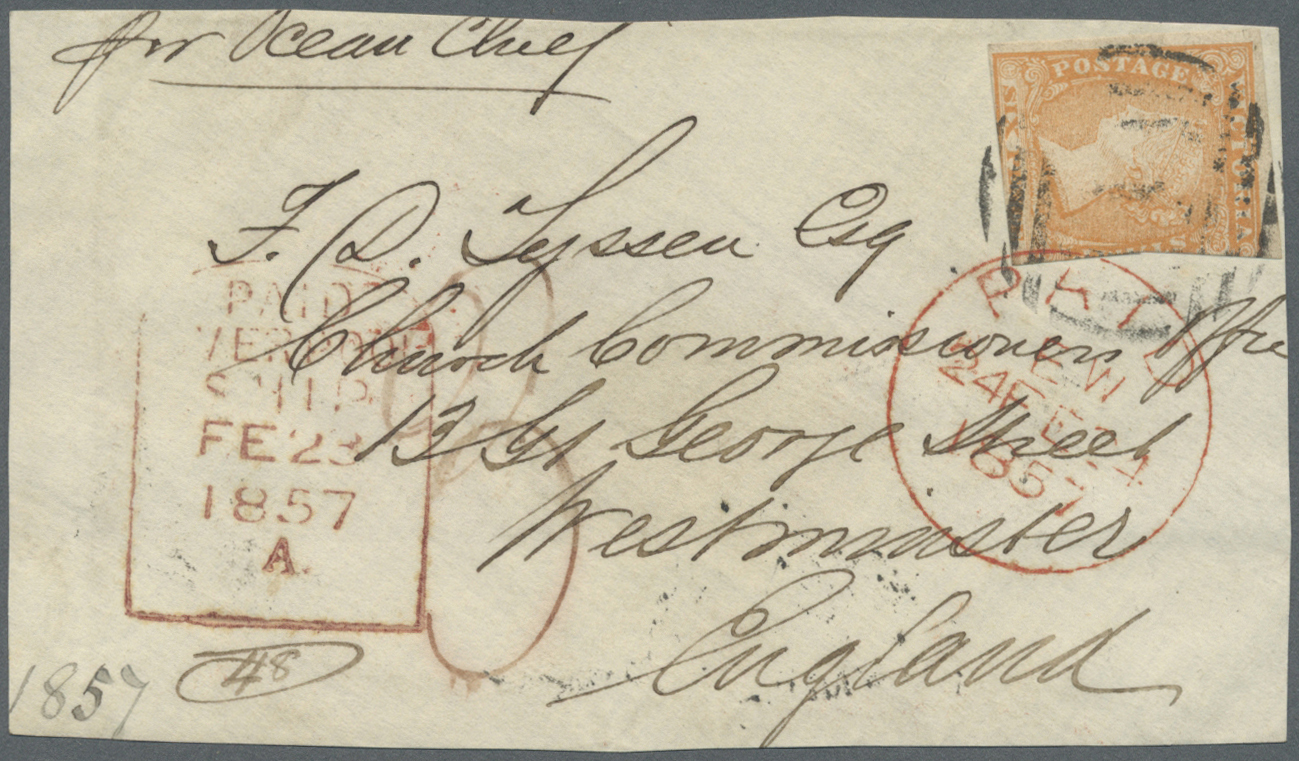 per Ocean Chief
POSTAGE
SIX
VICTORIA
F. D. Tyssen Esq
Church Commissioners Office
13 Gt George Street
Westminster
England
PAID
LIVERPOOL
SHIP
FE 23
1857
A.
PAID
24 FE 24
1857
48
1857